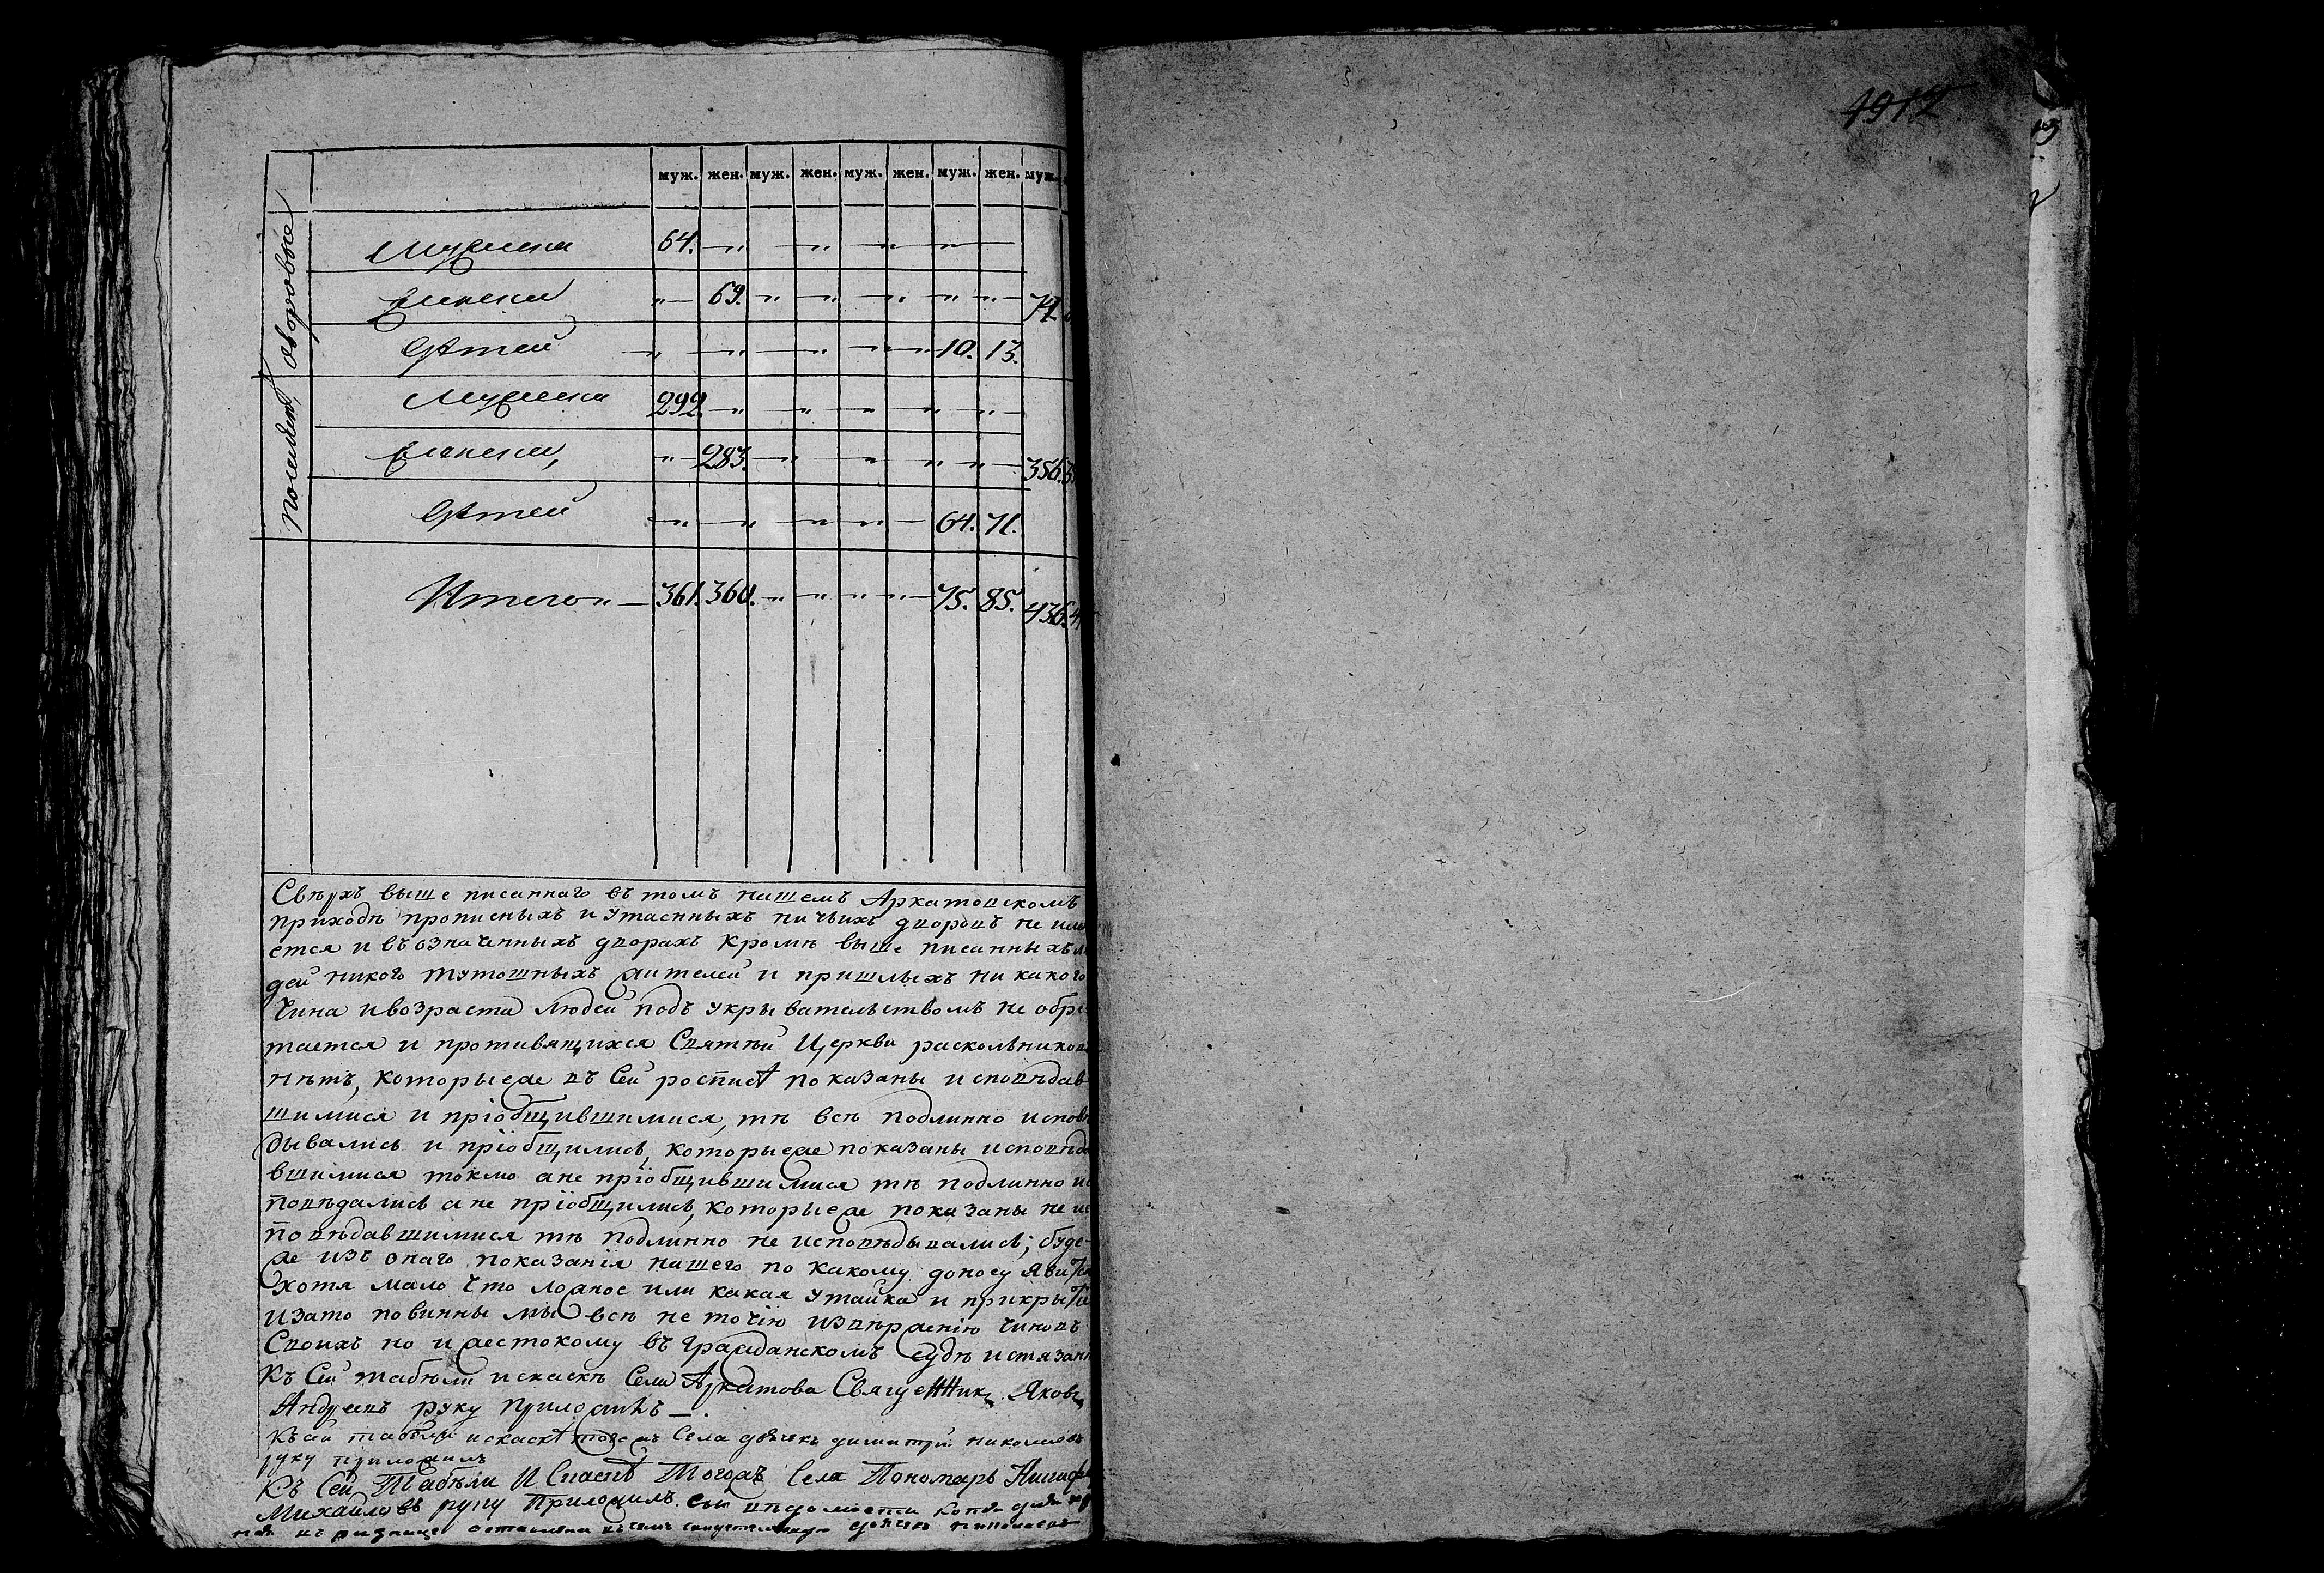 1912
муж. жен. муж. жен. муж. жен. муж. жен. муж.
дворовые
мужеска 64. —„— —„— —„— —„—
женска „— 69. „— „— „— „— „— 74.
детей „— —„— —„— —„— 10. 13.
поселяне
мужеска 292. —„— „— „— „— „—
женска, „— 283. —„— „— „— „— 356.
детей —„— —„— „— „— 64. 71.
Итого „— 361. 360. „— „— „— „— 75. 85. 436.
Сверхъ выше писаннаго въ томъ нашемъ Аркатовскомъ
приходѣ прописныхъ и утаенныхъ ни чьихъ дворовъ не име
ется и въ означенныхъ дворахъ кромѣ выше писанныхъ лю
дей никого тутошныхъ жителей и пришлыхъ ни какого
Чина и возраста людей подъ укрывательствомъ не обре
тается и противящихся Святѣй Церкви раскольников
нѣтъ, которыеже въ Сей росписѣ показаны исповѣдав
шимися и пріобщившимися, тѣ всѣ подлинно исповѣ
дывались и пріобщились, которыеже показаны исповѣда
вшимися токмо а не пріобщившимися тѣ подлинно ис
повѣдались а не пріобщились, которыеже показаны не ис
повѣдавшимися тѣ подлинно не исповѣдывались; буде
же изъ онаго показанія нашего по какому доносу явится
хотя мало что ложное или какая утайка и прикрыти
и зато повинны мы всѣ не точію изверженію чиновъ
Своихъ но и жестокому въ гражданскомъ судѣ истязани
Къ Сей табѣли и скаскѣ Села Аркатова Священникъ Яковъ
Андреевъ руку приложилъ —.
Къ сей табѣли и скаскѣ тогожъ Села дьячекъ димитрій николаевъ
руку приложилъ
Къ Сей Табѣли И Скаскѣ Тогожъ Села Пономарь Никифо
Михайловъ руку Приложилъ. Сей вѣдомости копія для
въ ризнице оставлена въ чемъ дьячекъ николаевъ